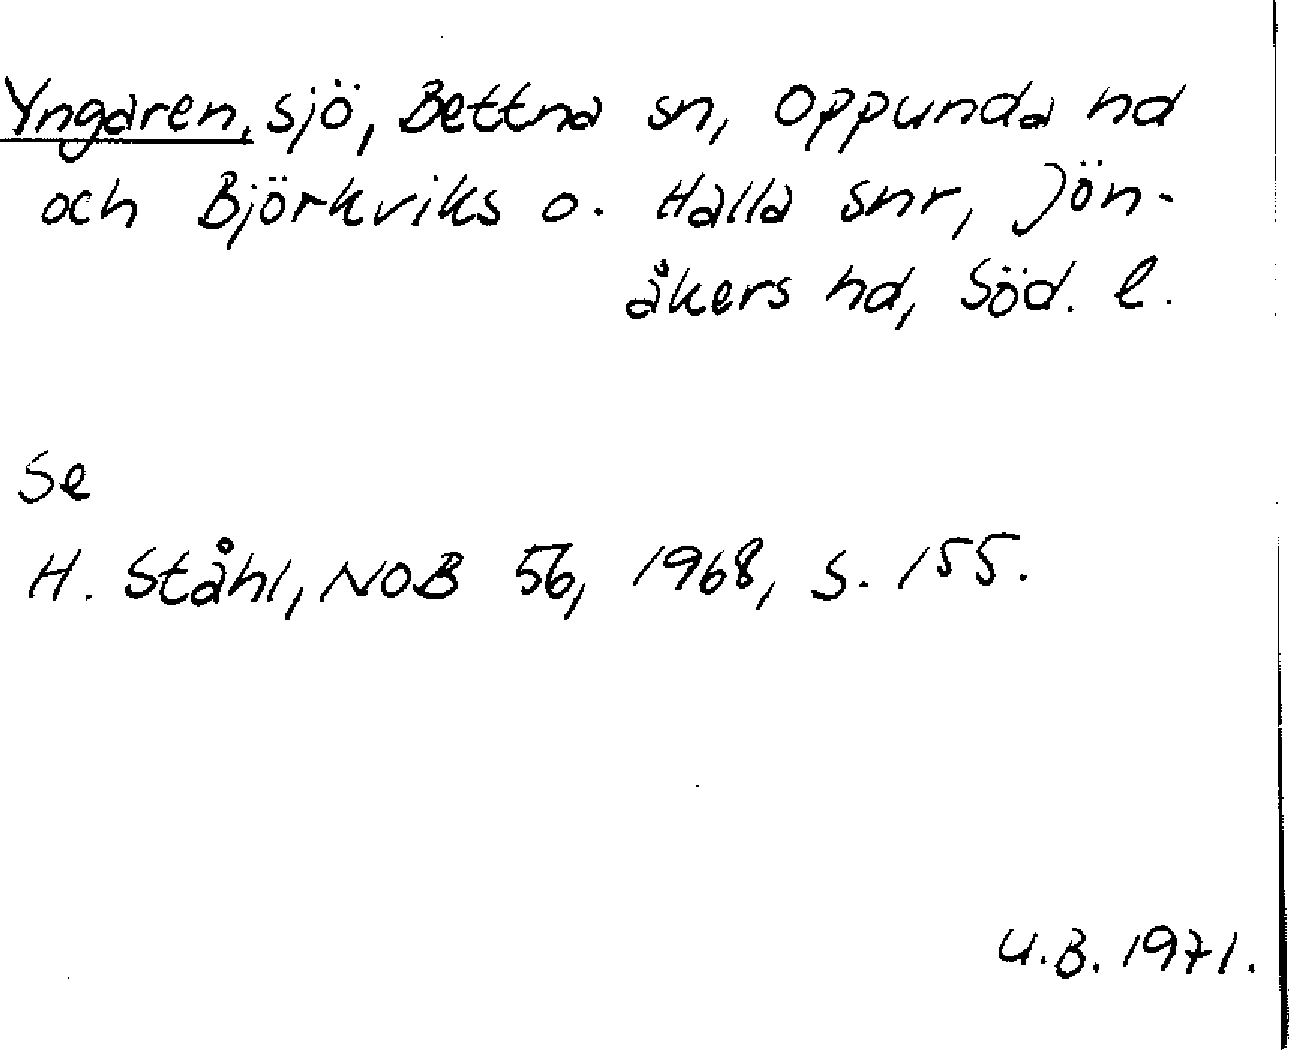 Yngaren, sjö, Bettna sn, Oppunda hd
och Björkviks o. Halla snr, Jön-
åkers hd, Söd. l.
Se
H. Ståhl, NOB 56, 1968, s. 155.
U.B. 1971.